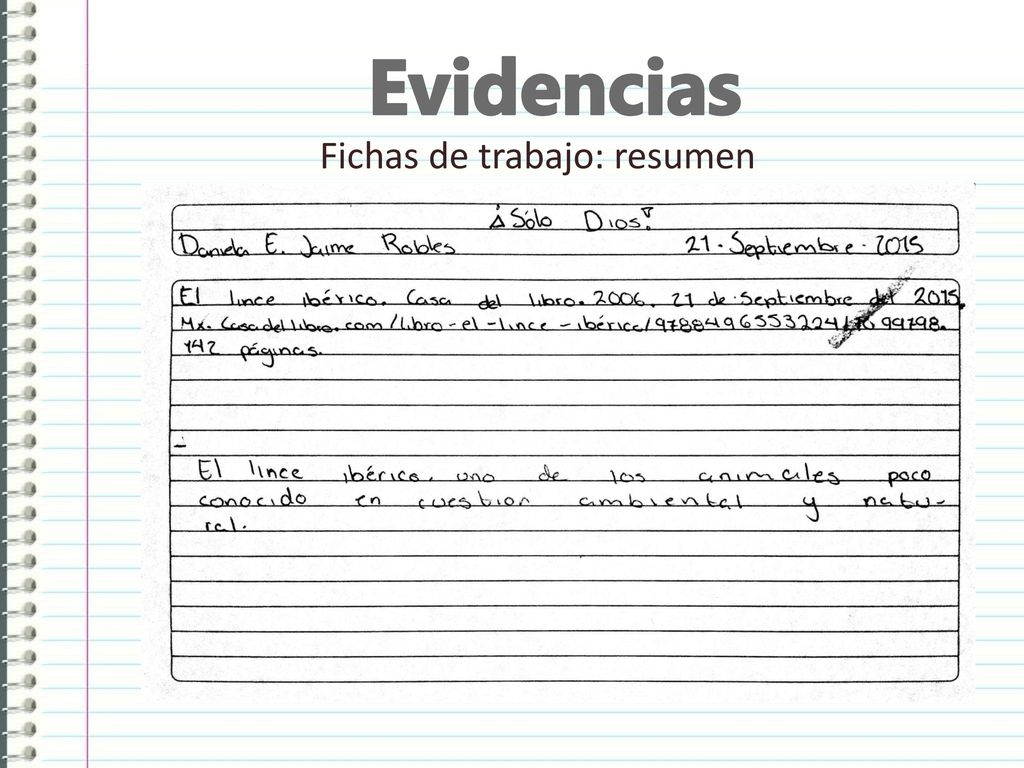 Evidencias
Fichas de trabajo: resumen
¡Sólo Dios!
Daniela E. Jaime Robles 21-Septiembre-2015
El lince ibérico. Casa del libro. 2006. 21 de septiembre del 2015.
Mx. Casadellibro.com/libro-el-lince-ibérico/9788496553224/ 99798.
142 páginas.
El lince ibérico, uno de los animales poco
conocido en cuestion ambiental y natu-
ral.